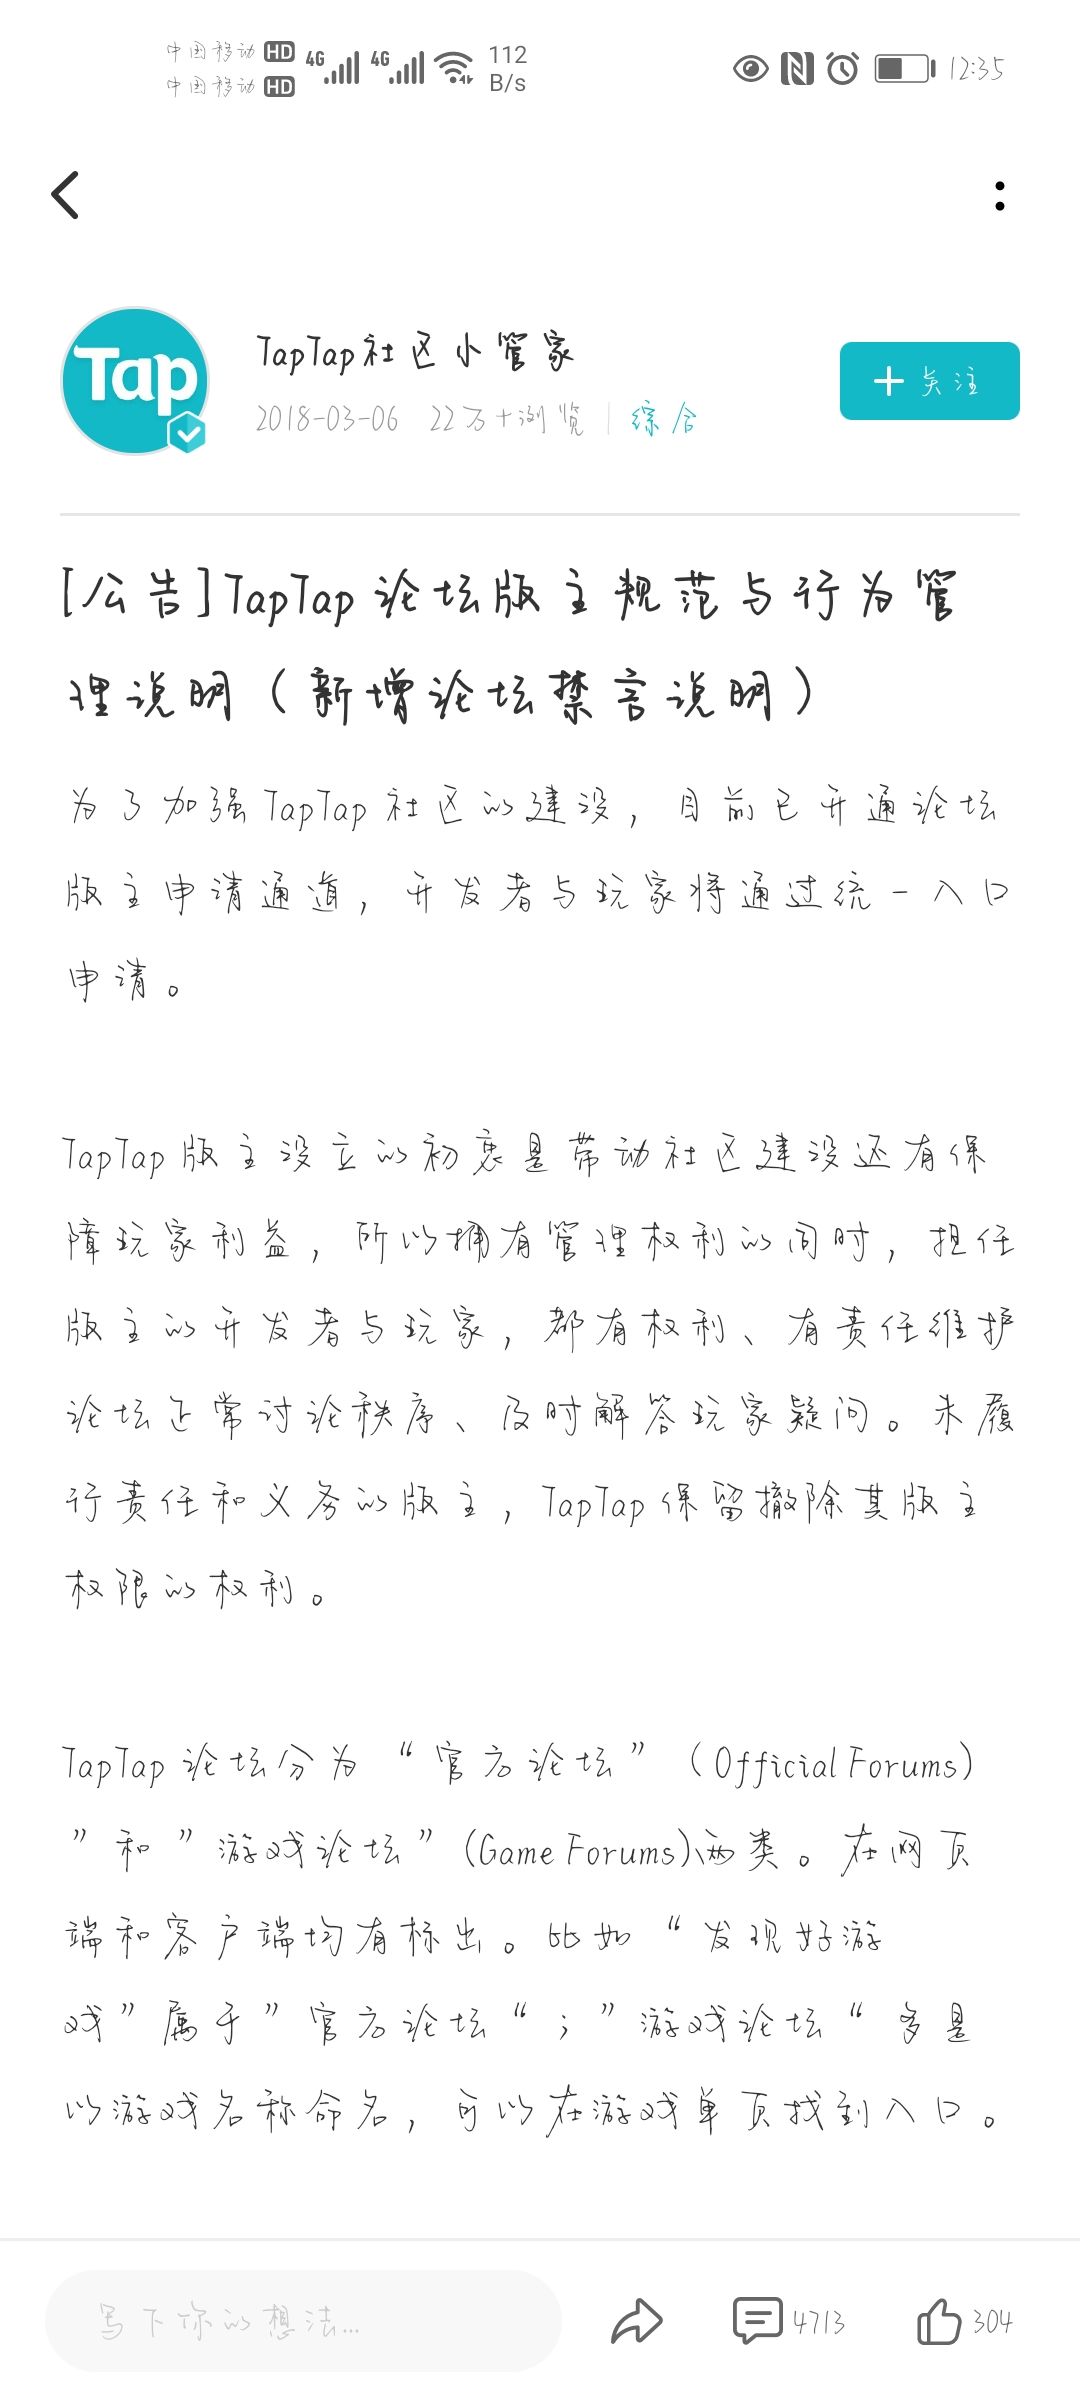 中国移动 HD 4G 4G 112 B/s 12:35
中国移动 HD
Tap
TapTap社区小管家
2018-03-06 22万+浏览 | 综合
+ 关注
[公告]TapTap 论坛版主规范与行为管
理说明（新增论坛禁言说明）
为了加强TapTap 社区的建设，目前已开通论坛
版主申请通道，开发者与玩家将通过统一入口
申请。
TapTap 版主设立的初衷是带动社区建设还有保
障玩家利益，所以拥有管理权利的同时，担任
版主的开发者与玩家，都有权利、有责任维护
论坛正常讨论秩序、及时解答玩家疑问。未履
行责任和义务的版主，TapTap 保留撤除其版主
权限的权利。
TapTap 论坛分为“官方论坛”（Official Forums)
”和”游戏论坛”(Game Forums)两类。在网页
端和客户端均有标出。比如“发现好游
戏”属于”官方论坛“；”游戏论坛“多是
以游戏名称命名，可以在游戏单页找到入口。
写下你的想法...
4713
304